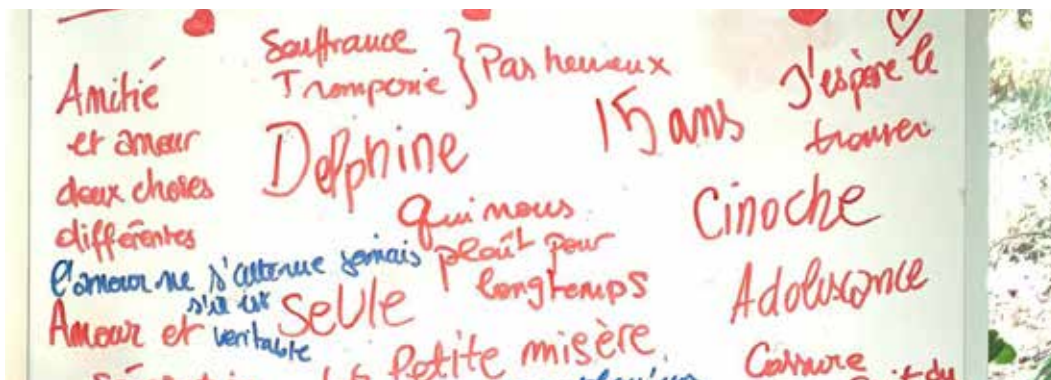 Amitié
et amour
deux choses
différentes
Souffrance
Tromperie } Pas heureux
Delphine
15 ans
J'espère le
trouver
Qui nous
plaît pour
longtemps
Cinoche
l'amour ne s'atténue jamais
s'il est
véritable
Seule
Adolescance
Amour et
Petite misère
Cassure